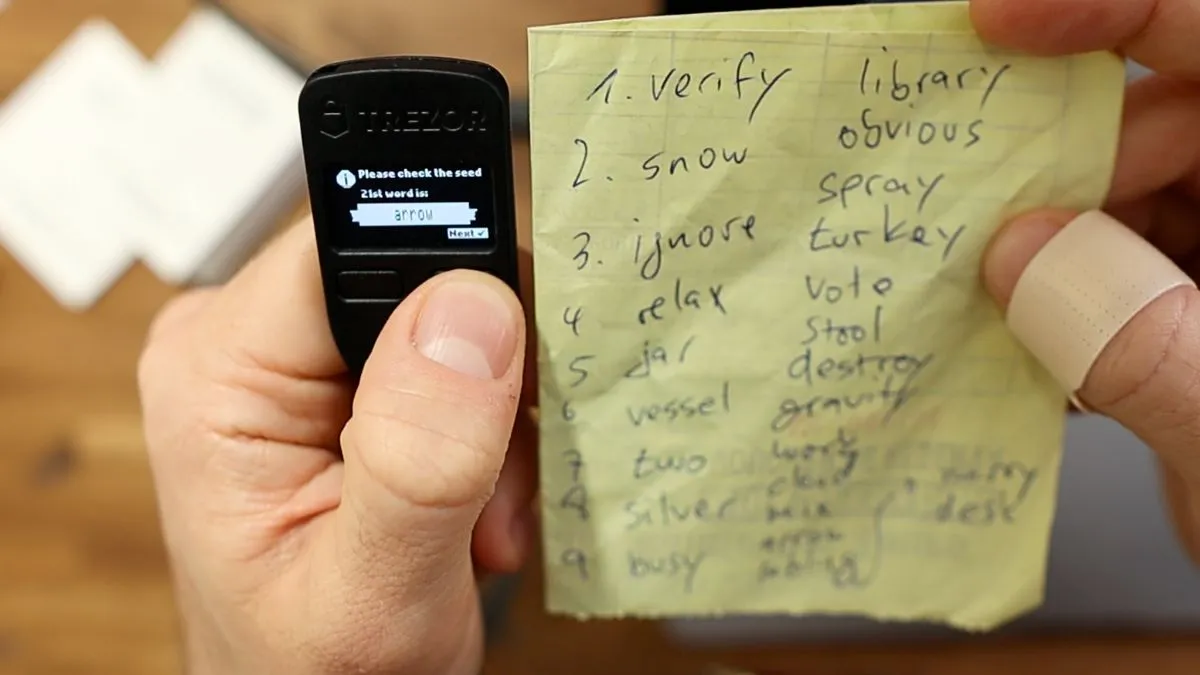 TREZOR
Please check the seed
21st word is:
arrow
Next ✓
1. verify
2. snow
3. ignore
4 relax
5 jar
6 vessel
7 two
8 silver
9 busy
library
obvious
spray
turkey
vote
stool
destroy
gravity
work
mix
arrow
desk